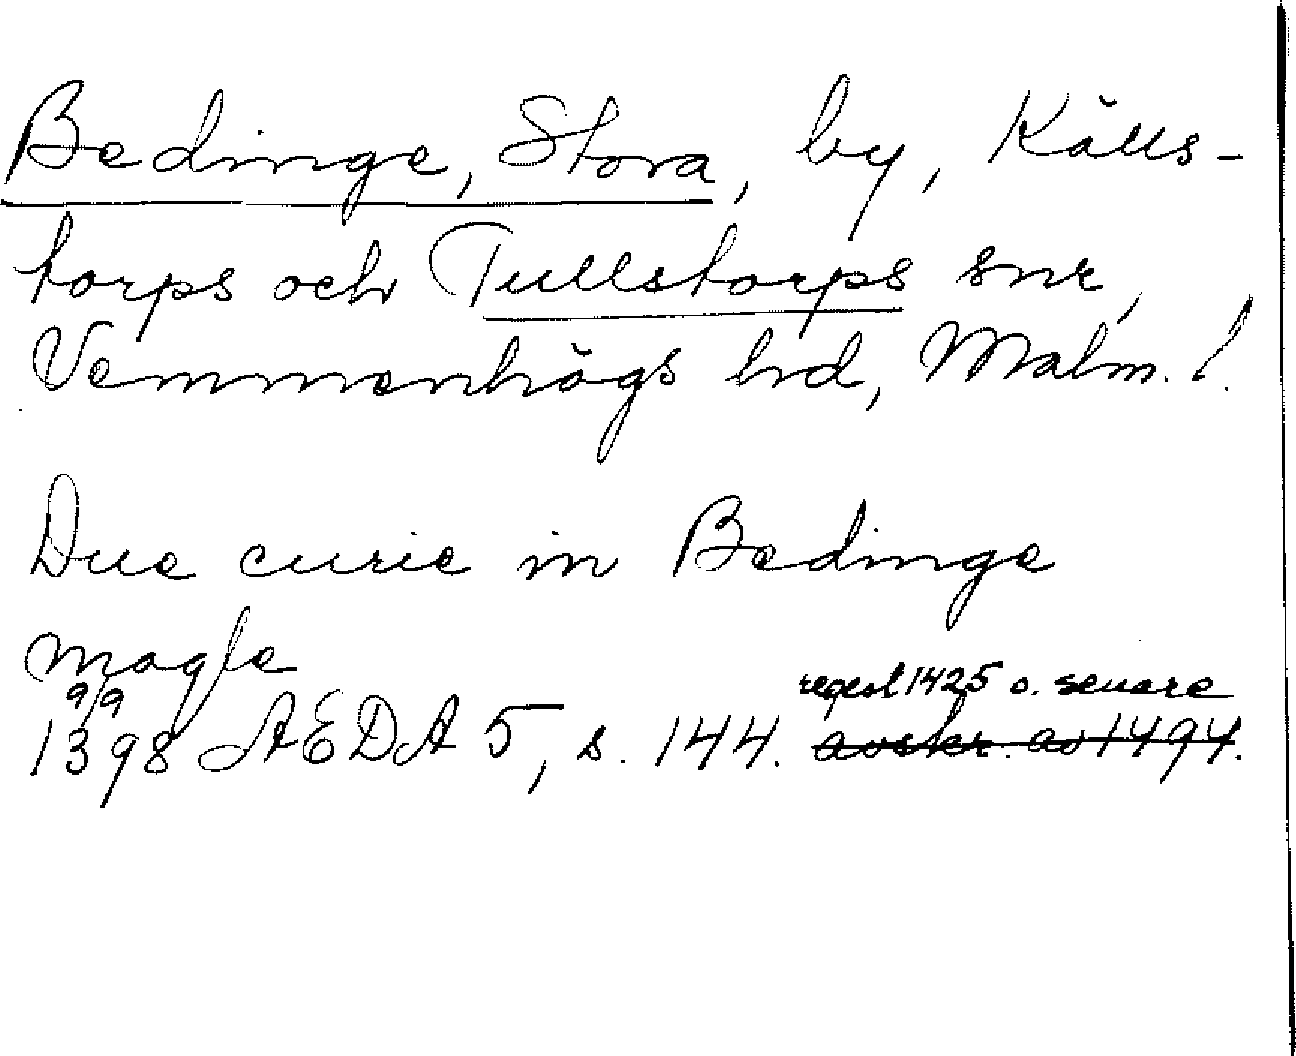 Bedinge, Stora, by, Källs-
torps och Tullstorps snr,
Vemmenhögs hd, Malm. l.
Due curie in Bedinge
magle
regest 1425 o. senare
9/9
1398 AEDA 5, s. 144. avskr. av 1494.